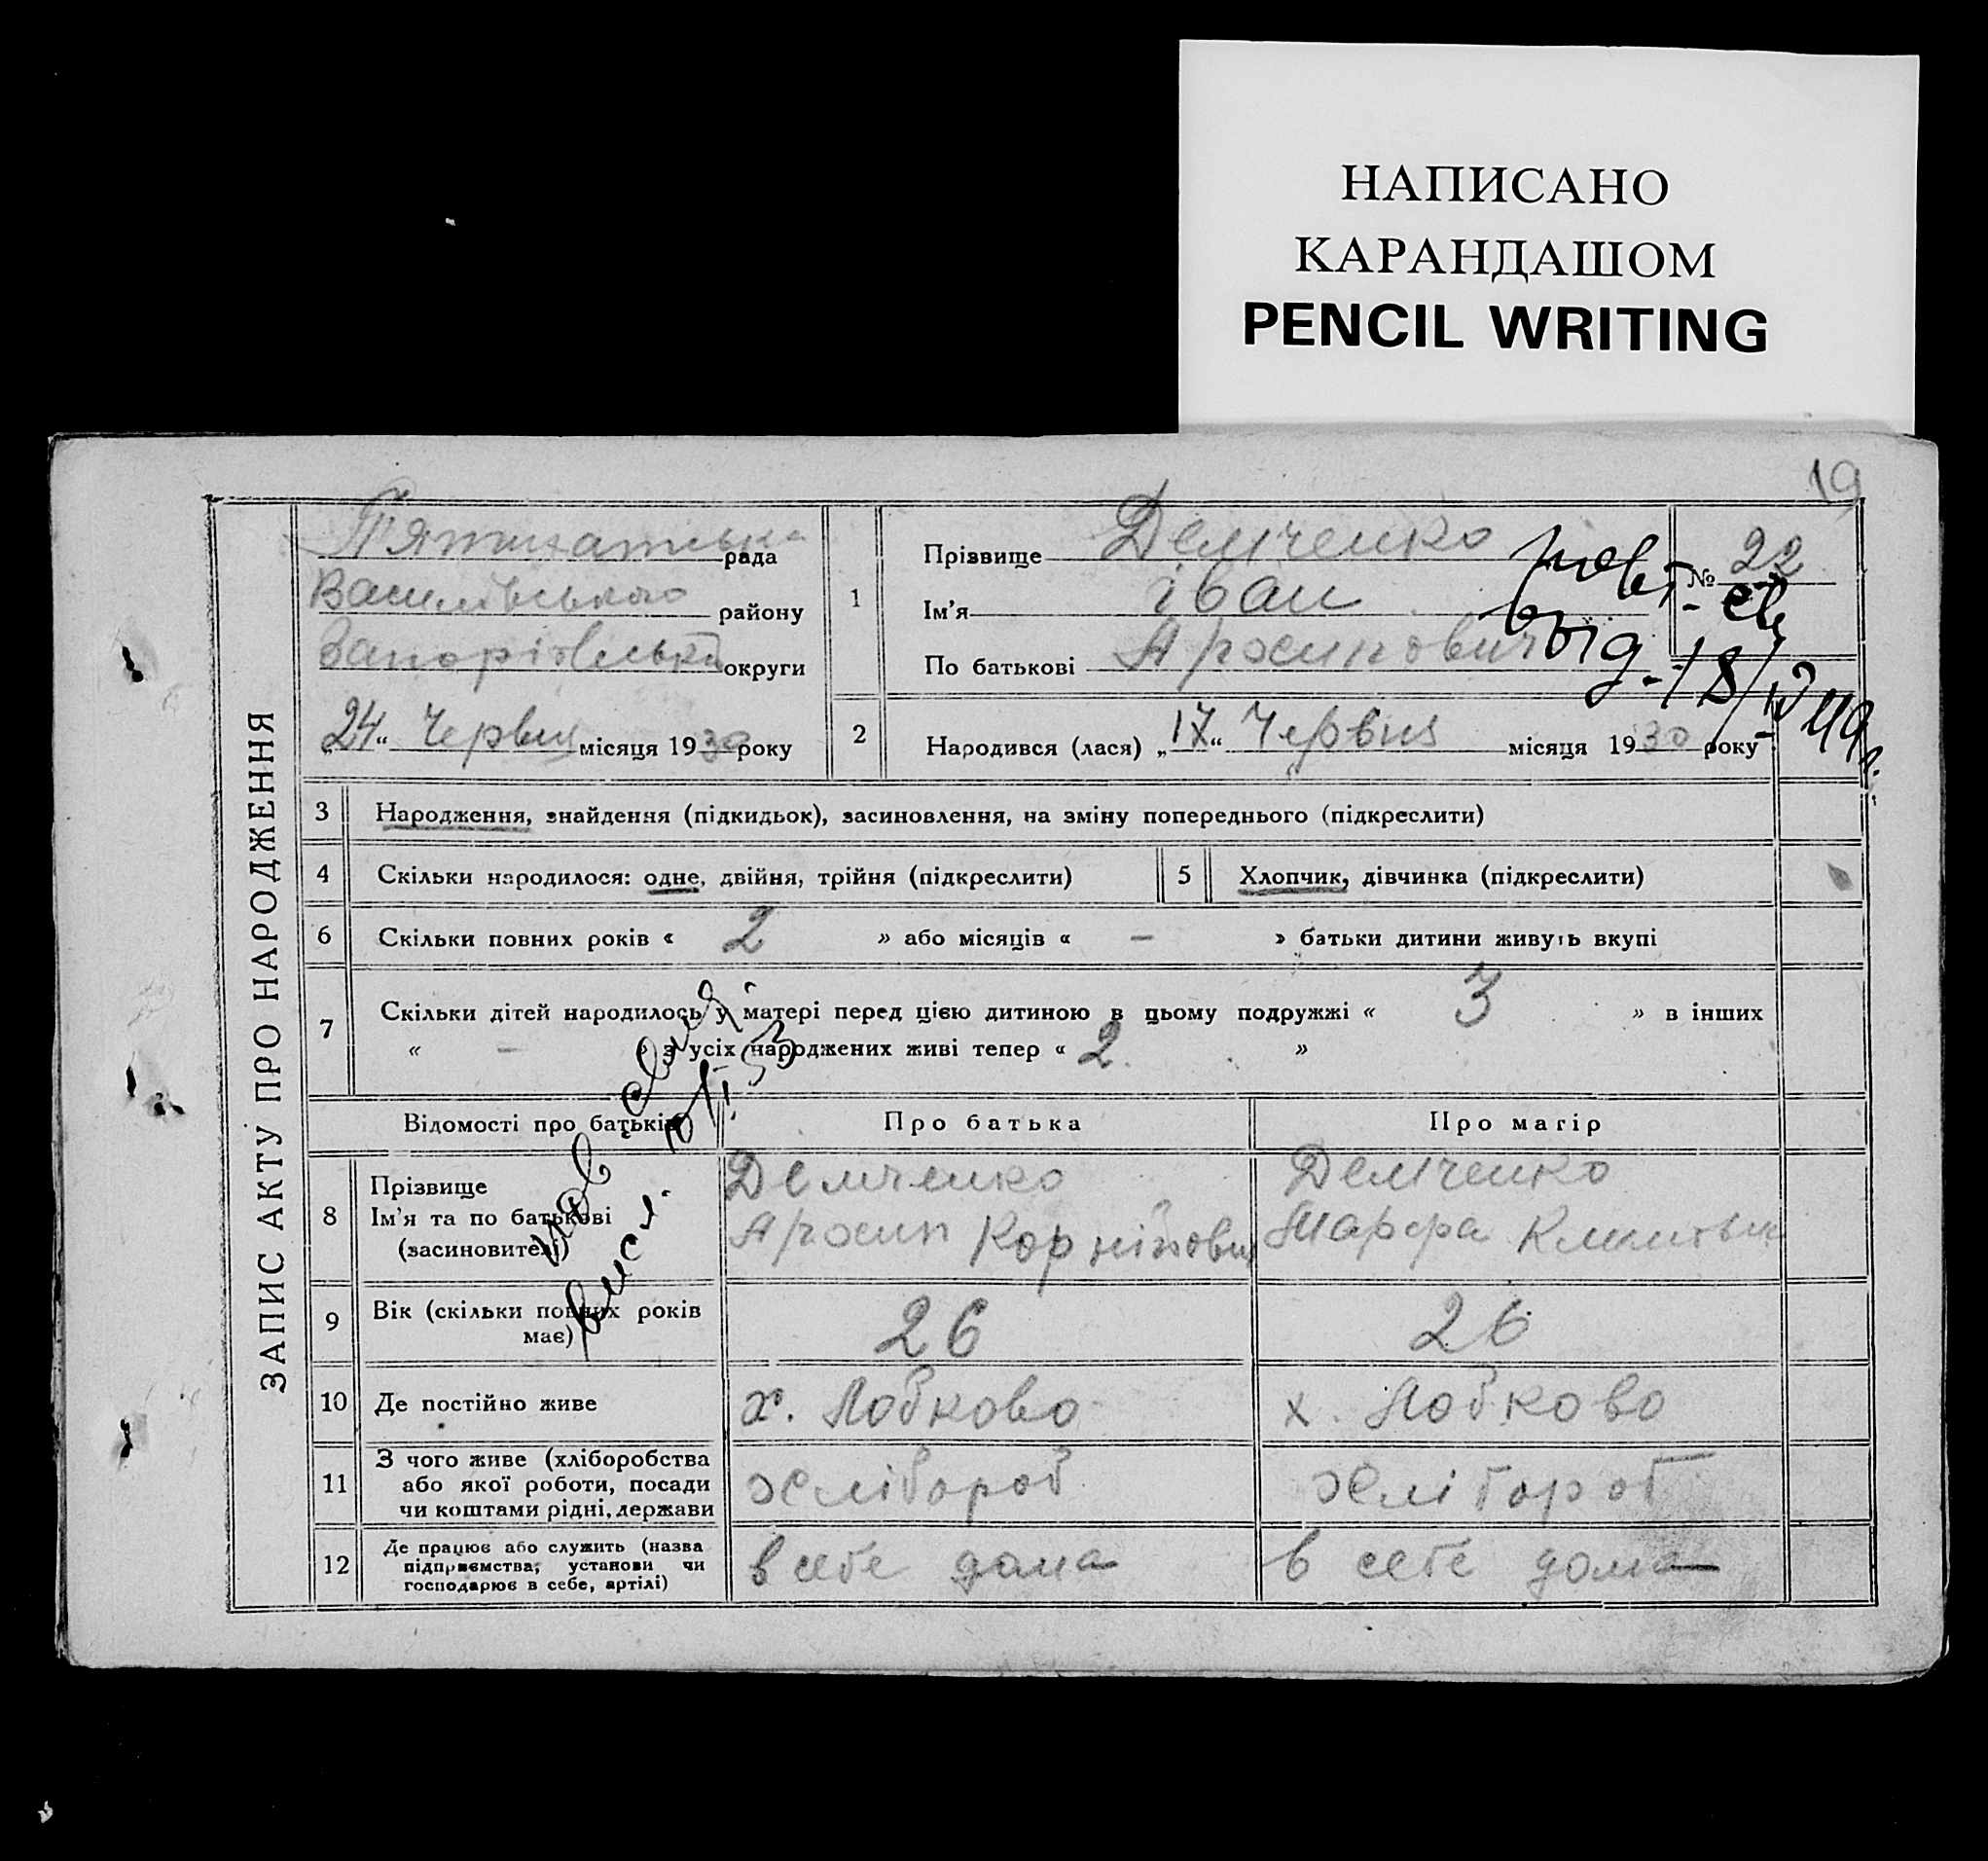 НАПИСАНО
КАРАНДАШОМ
PENCIL WRITING
19
ЗАПИС АКТУ ПРО НАРОДЖЕННЯ
П'ятихатська рада
Василівського району
округи
„24“ Червня місяця 1930 року
1
Прізвище Демченко
Ім'я іван
По батькові
№ 22
повт. св
выд. 18/
2
Народився (лася) „17“ Червня місяця 1930 року
3 Народження, знайдення (підкидьок), засиновлення, на зміну попереднього (підкреслити)
4 Скільки народилося: одне, двійня, трійня (підкреслити)
5 Хлопчик, дівчинка (підкреслити)
6 Скільки повних років « 2 » або місяців « – » батьки дитини живуть вкупі
7 Скільки дітей народилось у матері перед цією дитиною в цьому подружжі « 3 » в інших
« – » з усіх народжених живі тепер « 2 »
Відомості про батьків
Про батька
Про матір
8 Прізвище
Ім'я та по батькові
(засиновителі)
Демченко
Архип Корнійович
Демченко
Марфа
9 Вік (скільки повних років
має)
26
26
10 Де постійно живе
х. Лобково
х. Лобково
11 З чого живе (хліборобства
або якої роботи, посади
чи коштами рідні, держави
хлібороб
хлібороб
12 Де працює або служить (назва
підприємства, установи чи
господарює в себе, артілі)
в себе дома
в себе дома